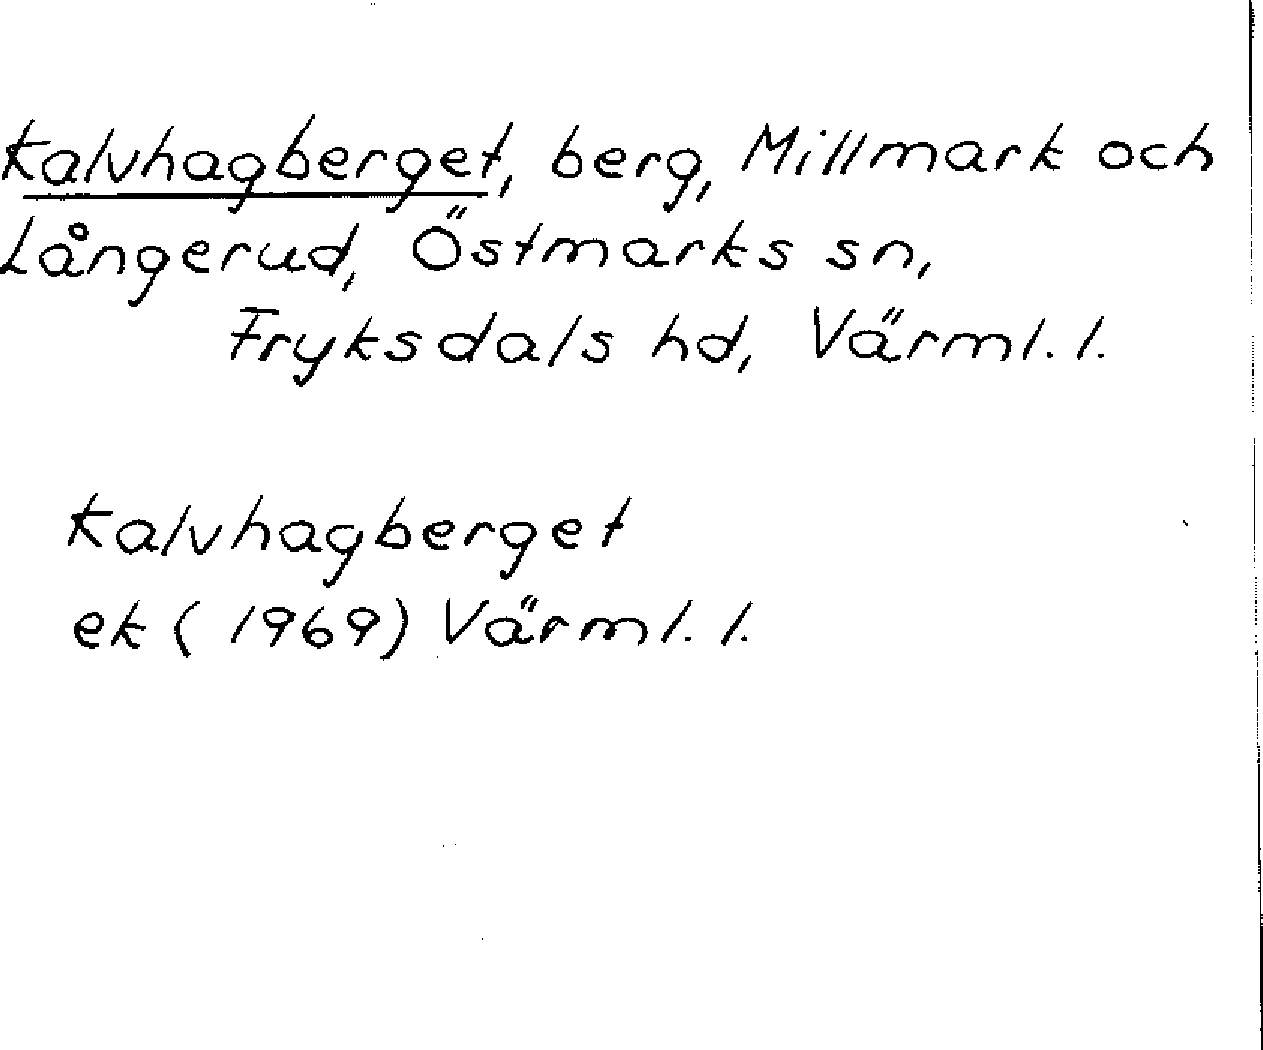 Kalvhagberget, berg, Millmark och
Långerud, Östmarks sn,
Fryksdals hd, Värml. l.
Kalvhagberget
ek (1969) Värml. l.